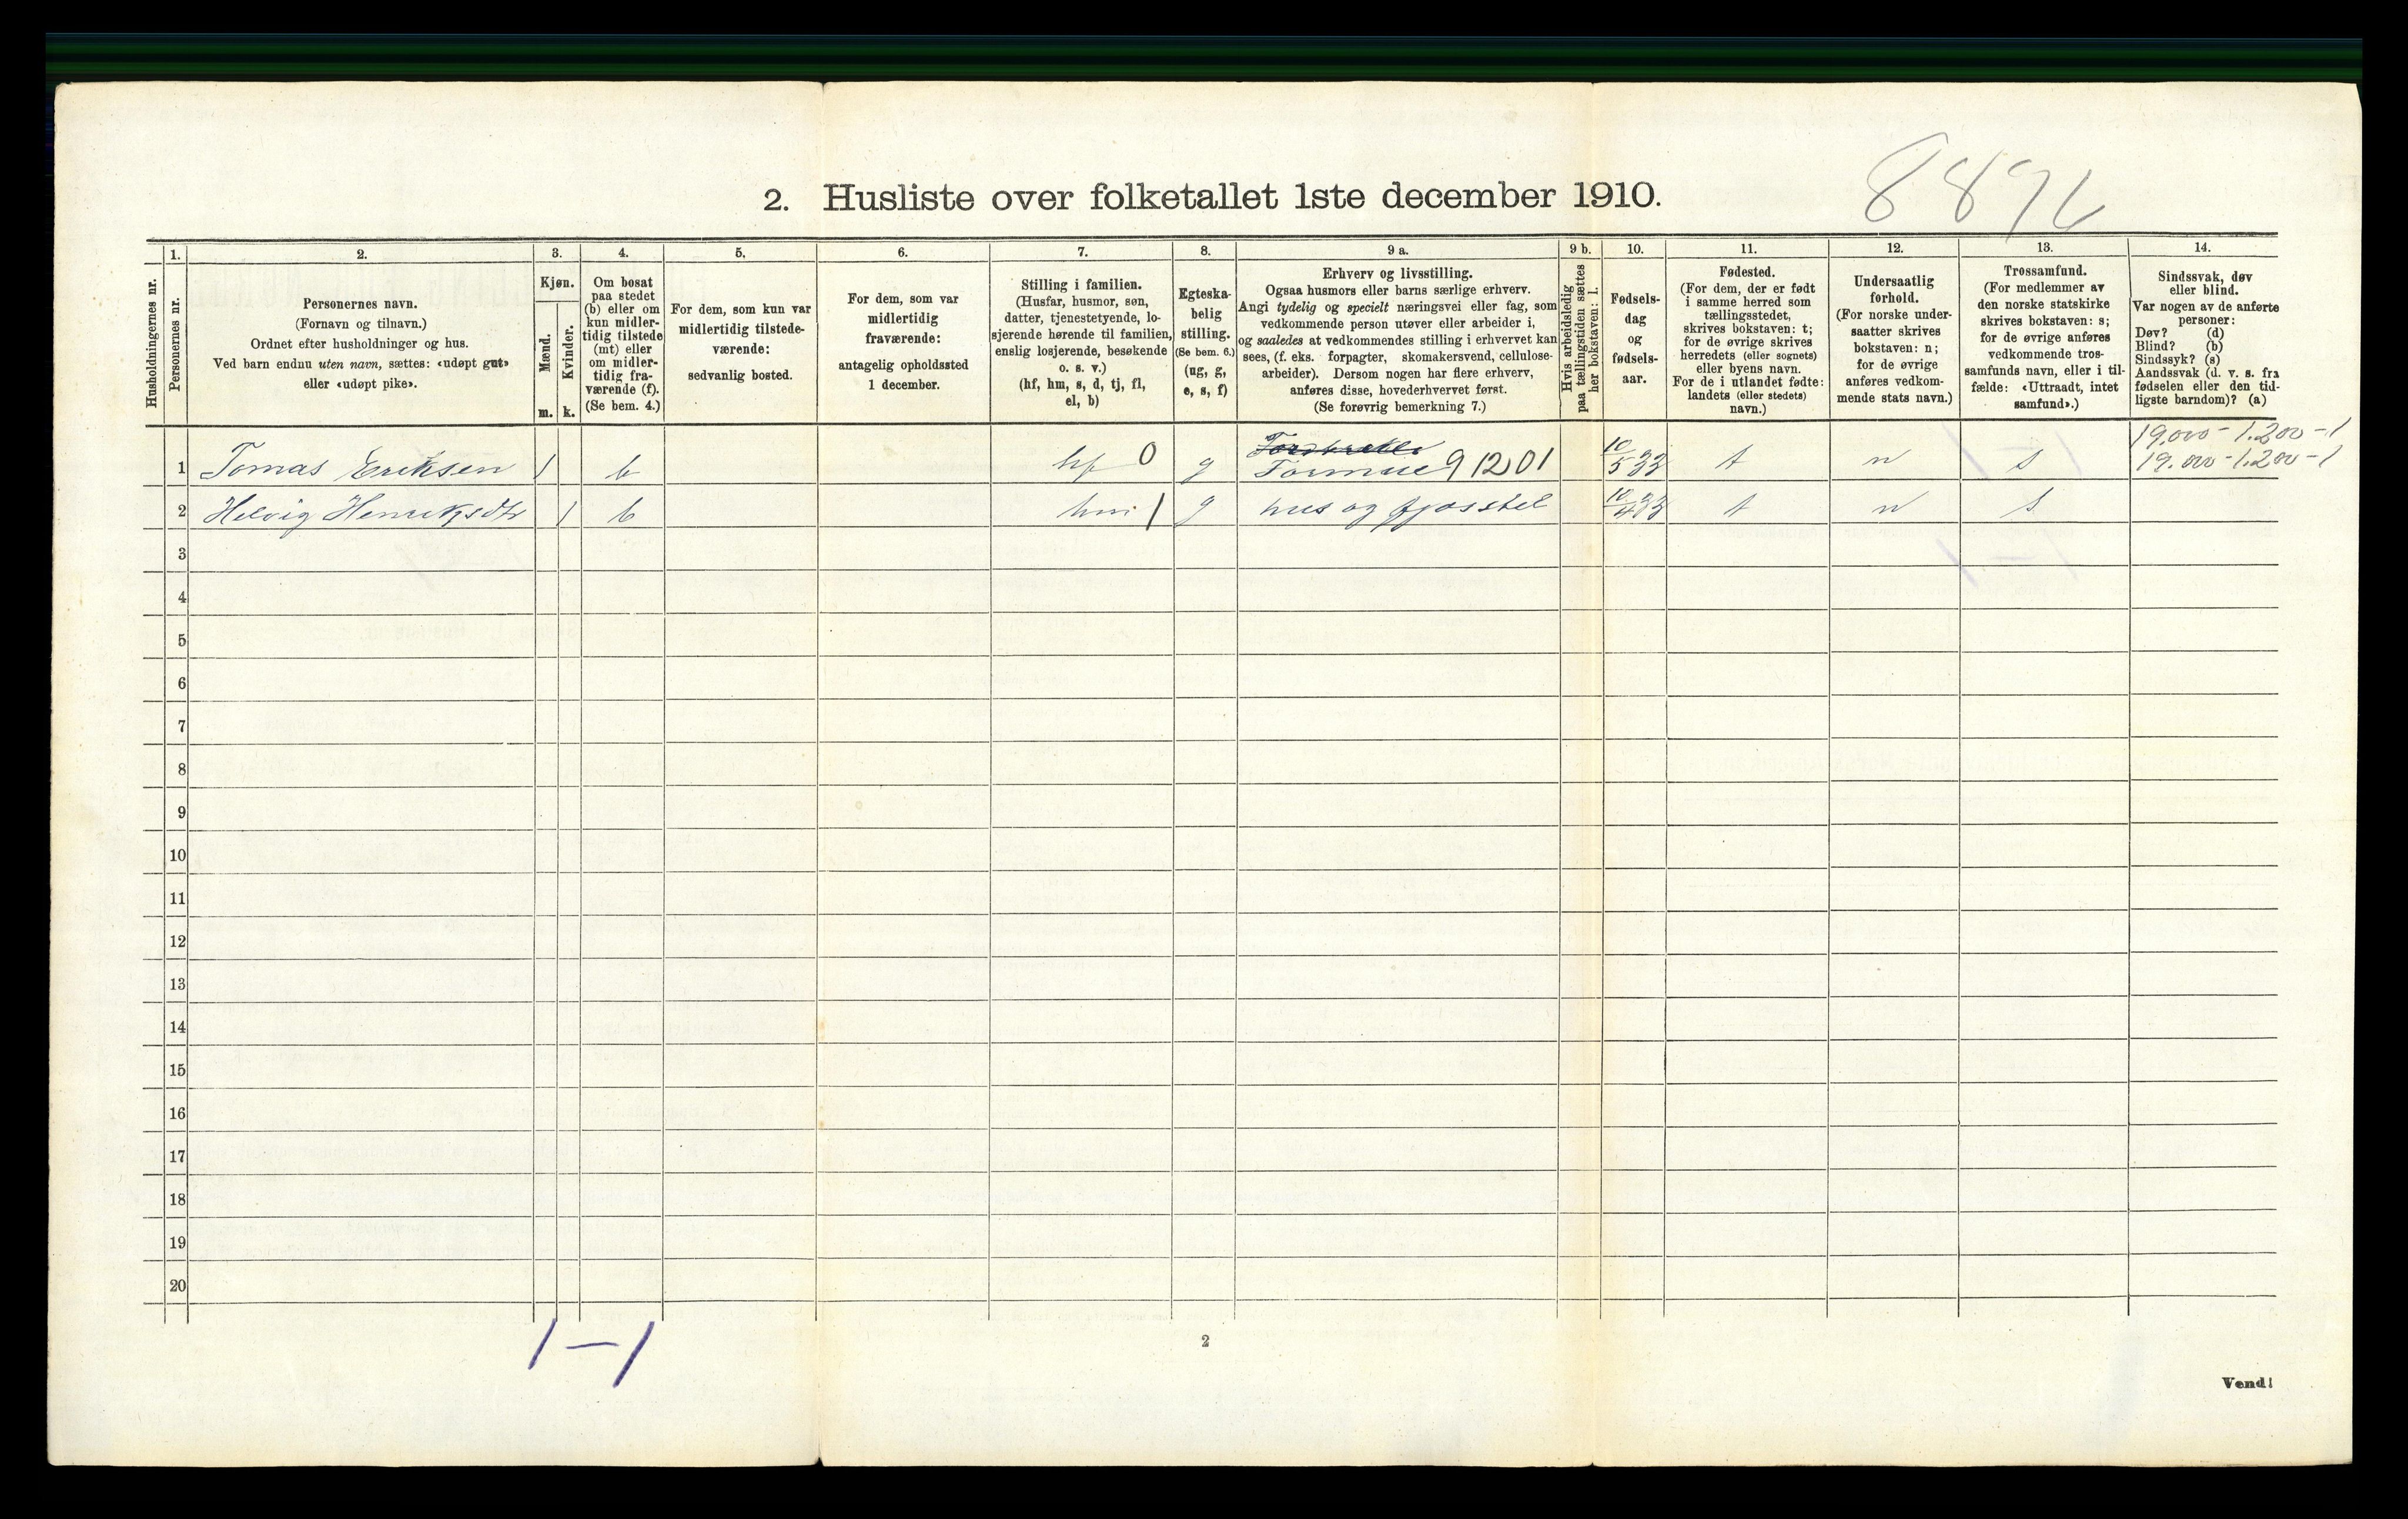 8896
2. Husliste over folketallet 1ste december 1910.
Husholdningernes nr.
1.
Personernes nr.
2.
Personernes navn.
(Fornavn og tilnavn.)
Ordnet efter husholdninger og hus.
Ved barn endnu uten navn, sættes: «udøpt gut»
eller «udøpt pike».
3.
Kjøn.
Mænd.
m.
Kvinder.
k.
4.
Om bosat
paa stedet
(b) eller om
kun midler-
tidig tilstede
(mt) eller
om midler-
tidig fra-
værende (f).
(Se bem. 4.)
5.
For dem, som kun var
midlertidig tilstede-
værende:
sedvanlig bosted.
6.
For dem, som var
midlertidig
fraværende:
antagelig opholdssted
1 december.
7.
Stilling i familien.
(Husfar, husmor, søn,
datter, tjenestetyende, lo-
sjerende hørende til familien,
enslig losjerende, besøkende
o. s. v.)
(hf, hm, s, d, tj, fl,
el, b)
8.
Egteska-
belig
stilling.
(Se bem. 6.)
(ug, g,
e, s, f)
9 a.
Erhverv og livsstilling.
Ogsaa husmors eller barns særlige erhverv.
Angi tydelig og specielt næringsvei eller fag, som
vedkommende person utøver eller arbeider i,
og saaledes at vedkommendes stilling i erhvervet kan
sees, (f. eks. forpagter, skomakersvend, cellulose-
arbeider). Dersom nogen har flere erhverv,
anføres disse, hovederhvervet først.
(Se forøvrig bemerkning 7.)
9 b.
Hvis arbeidsledig
paa tællingstiden sættes
her bokstaven: l.
10.
Fødsels-
dag
og
fødsels-
aar.
11.
Fødested.
(For dem, der er født
i samme herred som
tællingsstedet,
skrives bokstaven: t;
for de øvrige skrives
herredets (eller sognets)
eller byens navn.
For de i utlandet fødte:
landets (eller stedets)
navn.)
12.
Undersaatlig
forhold.
(For norske under-
saatter skrives
bokstaven: n;
for de øvrige
anføres vedkom-
mende stats navn.)
13.
Trossamfund.
(For medlemmer av
den norske statskirke
skrives bokstaven: s;
for de øvrige anføres
vedkommende tros-
samfunds navn, eller i til-
fælde: «Uttraadt, intet
samfund».)
14.
Sindssvak, døv
eller blind.
Var nogen av de anførte
personer:
Døv? (d)
Blind? (b)
Sindssyk? (s)
Aandssvak (d. v. s. fra
fødselen eller den tid-
ligste barndom)? (a)
19.000 - 1.200 - 1
1 Tomas Eriksen 1 b hf 0 g Formue 9 12 01 10/5 33 t n s 19.000 - 1.200 - 1
2 Helvig Henriksdtr 1 b hm 1 g hus og fjøsstel 10/4 33 t n s
3
4
5
6
7
8
9
10
11
12
13
14
15
16
17
18
19
20
1 - 1
2
Vend!